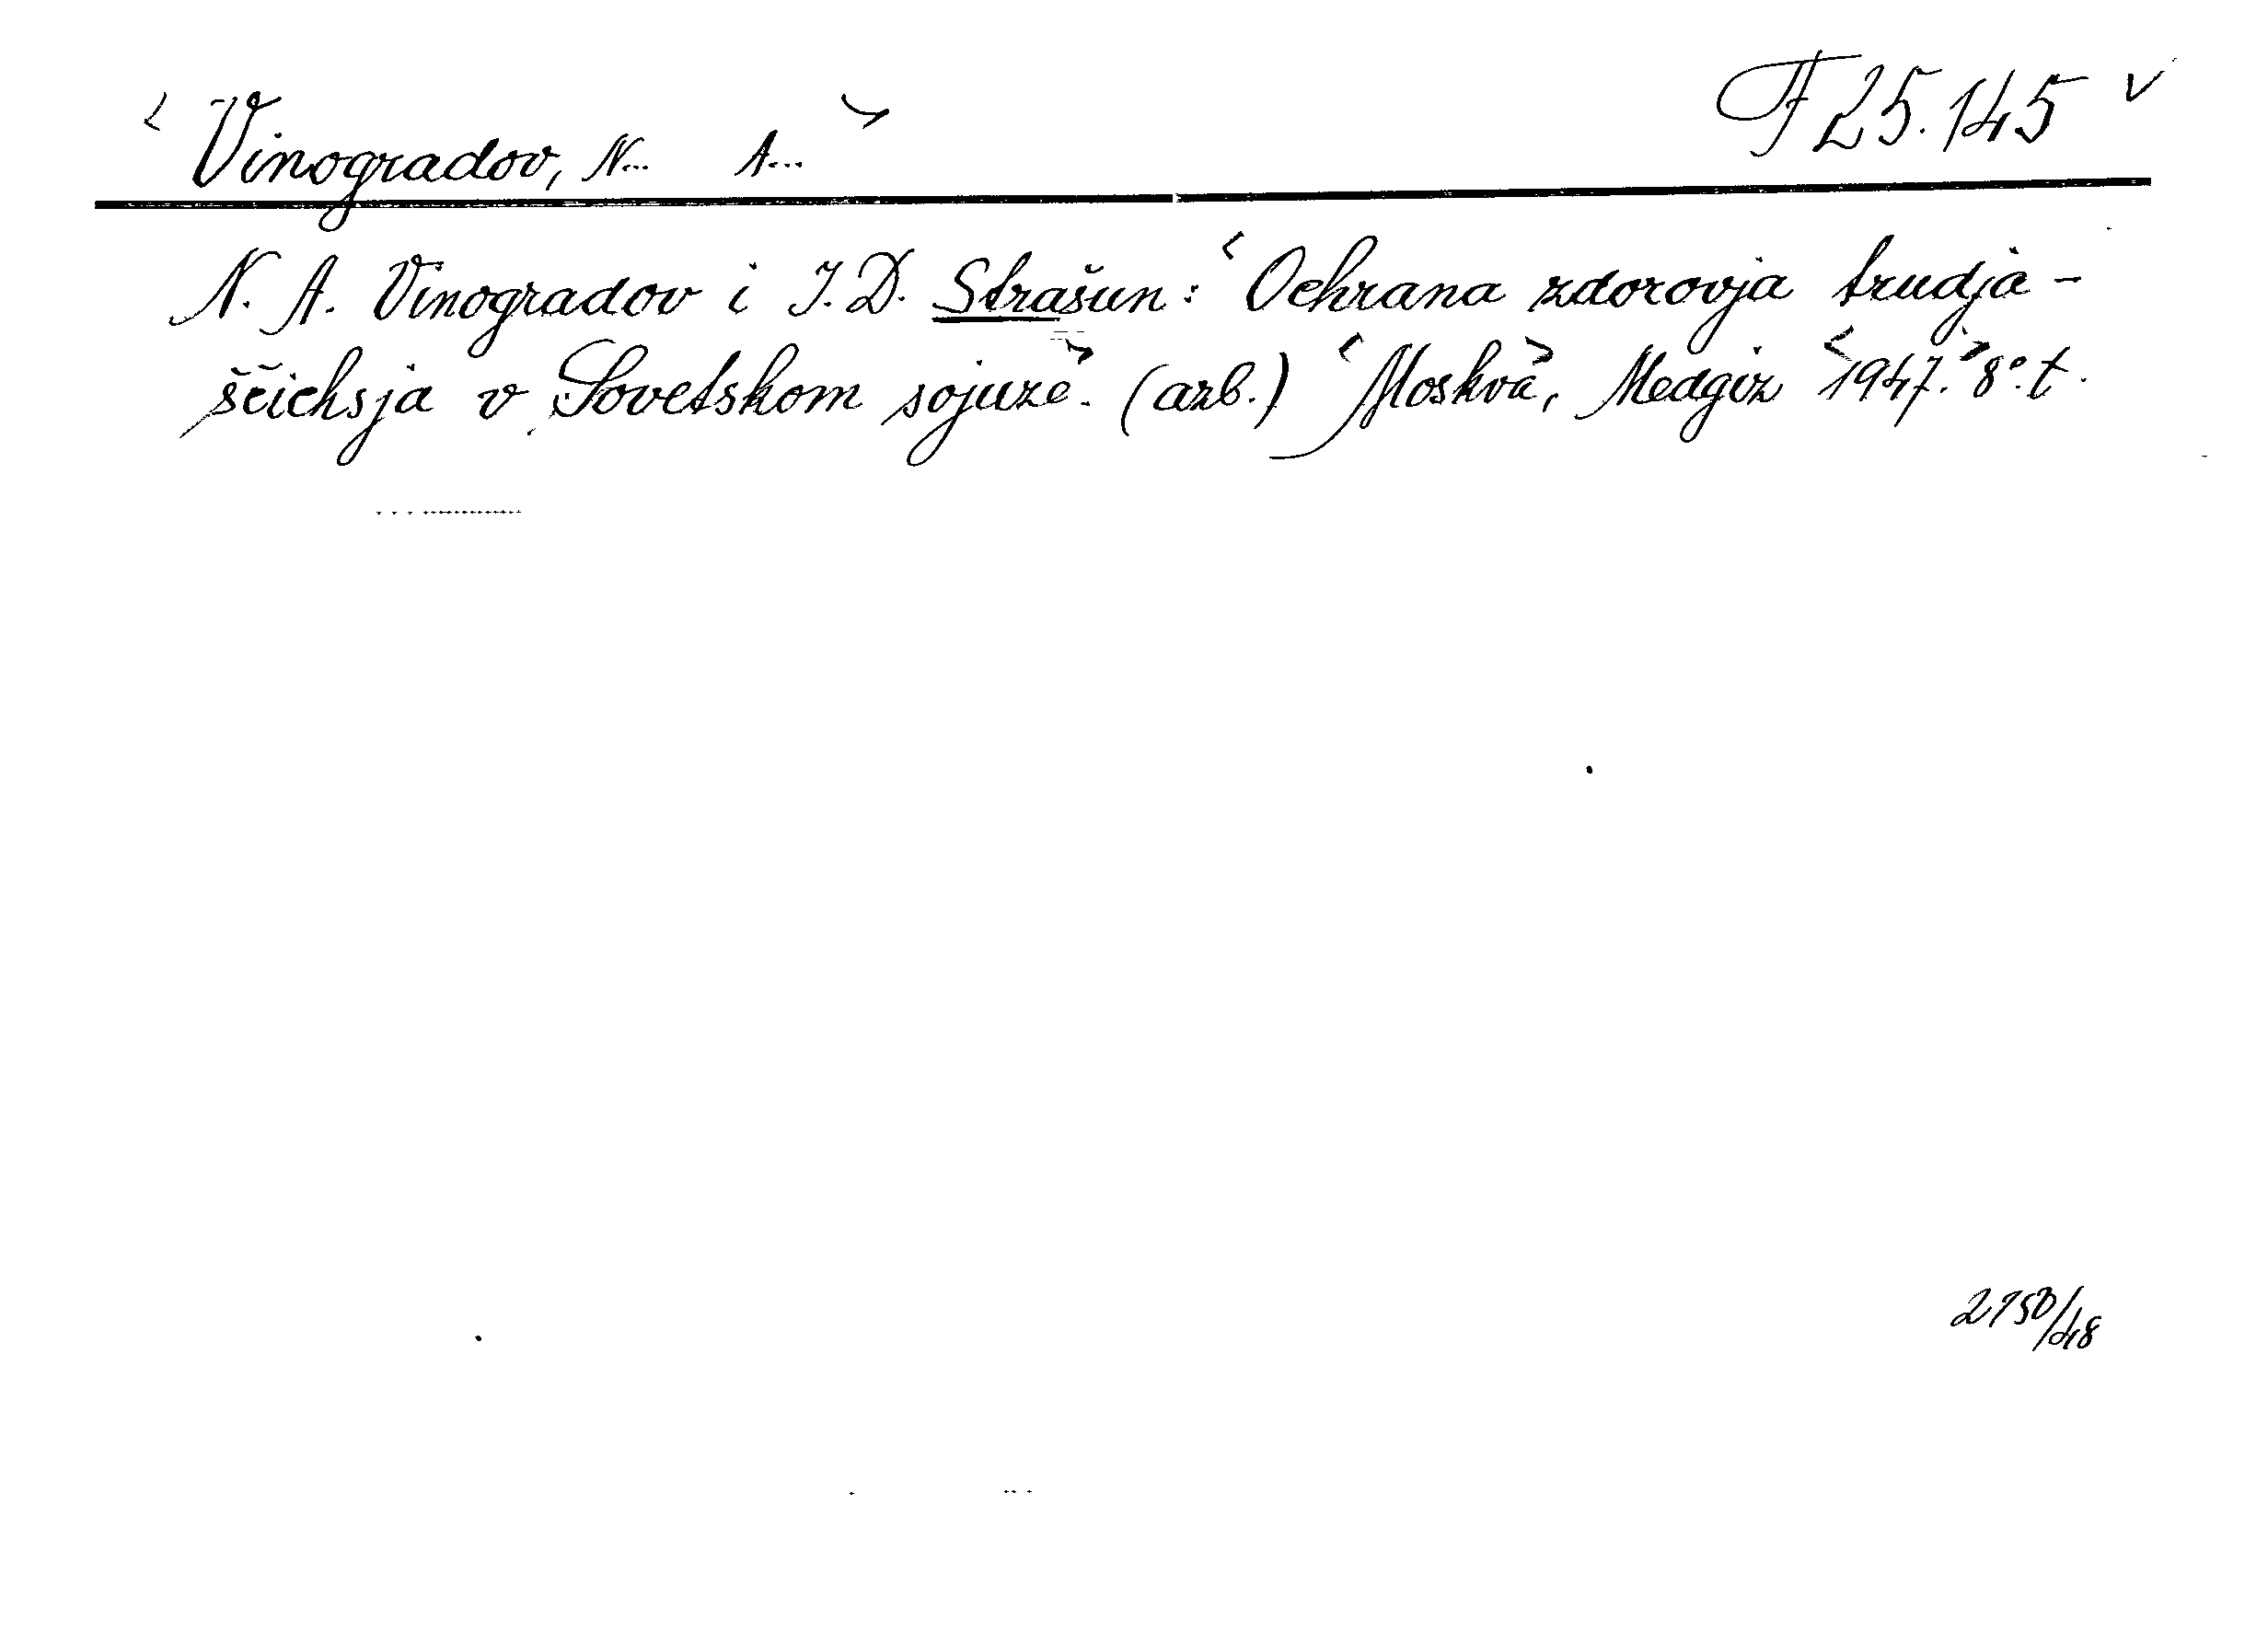 < Vinogradov, N... A... > F 25.145 v
N. A. Vinogradov i I. D. Strašun: <Ochrana zdorovja trudja-
ščichsja v Sovetskom sojuze>. (azb.) <Moskva>, Medgiz <1947.> 8°. t.
2150/48